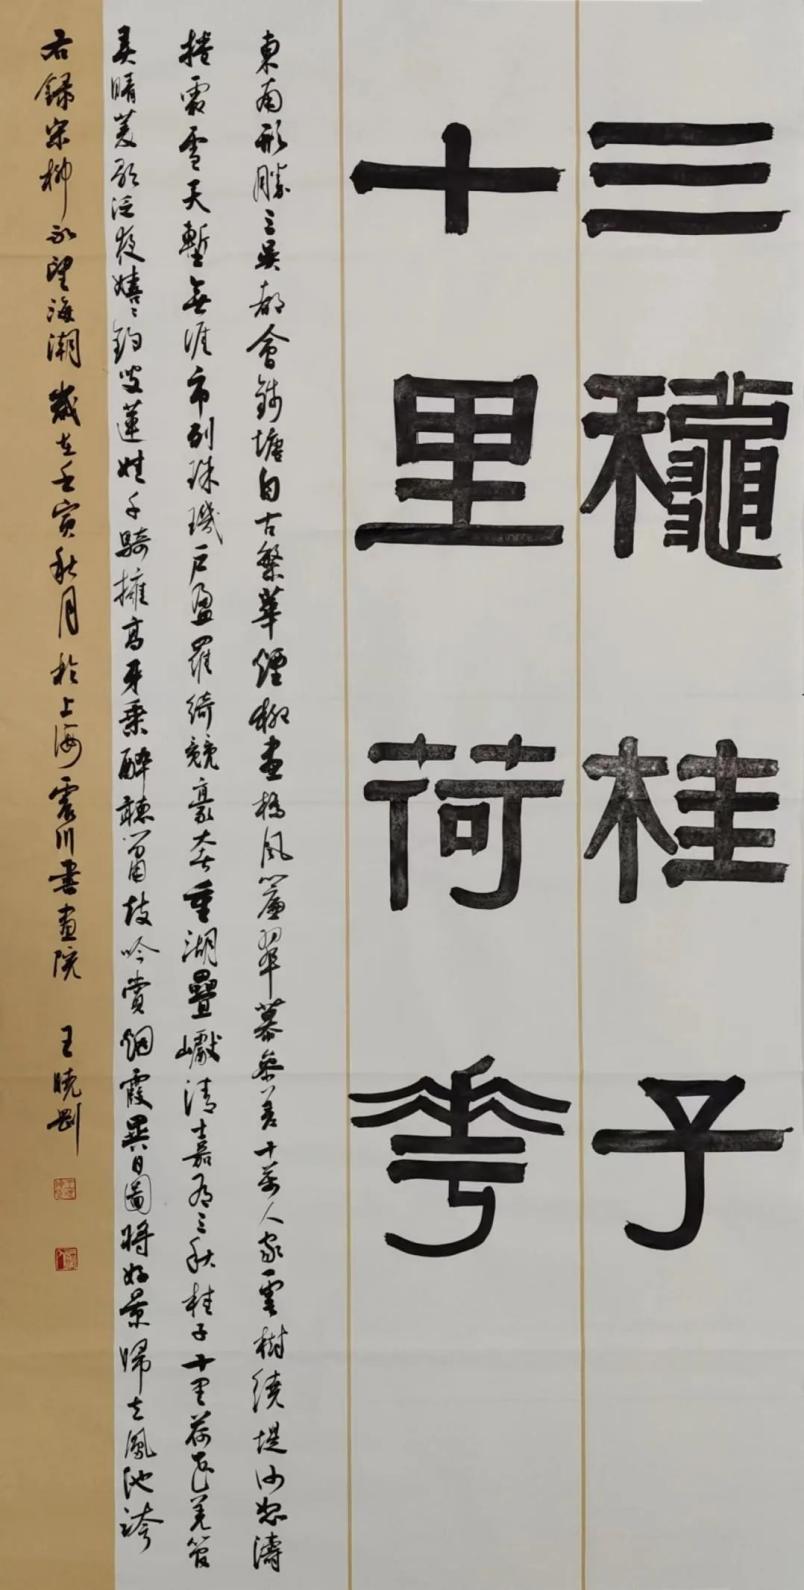 三龝桂子
十里荷華
東南形勝三吳都會錢塘自古繁華煙柳畫橋風簾翠幕參差十萬人家雲樹繞堤沙怒濤
捲霜雪天塹無涯市列珠璣戶盈羅綺競豪奢重湖疊巘清嘉有三秋桂子十里荷花羌管
弄晴菱歌泛夜嬉〻釣叟蓮娃千騎擁高牙乘醉聽簫鼓吟賞烟霞異日圖將好景歸去鳳池誇
右錄宋柳永望海潮 歲在壬寅秋月於上海震川書畫院 王曉剛